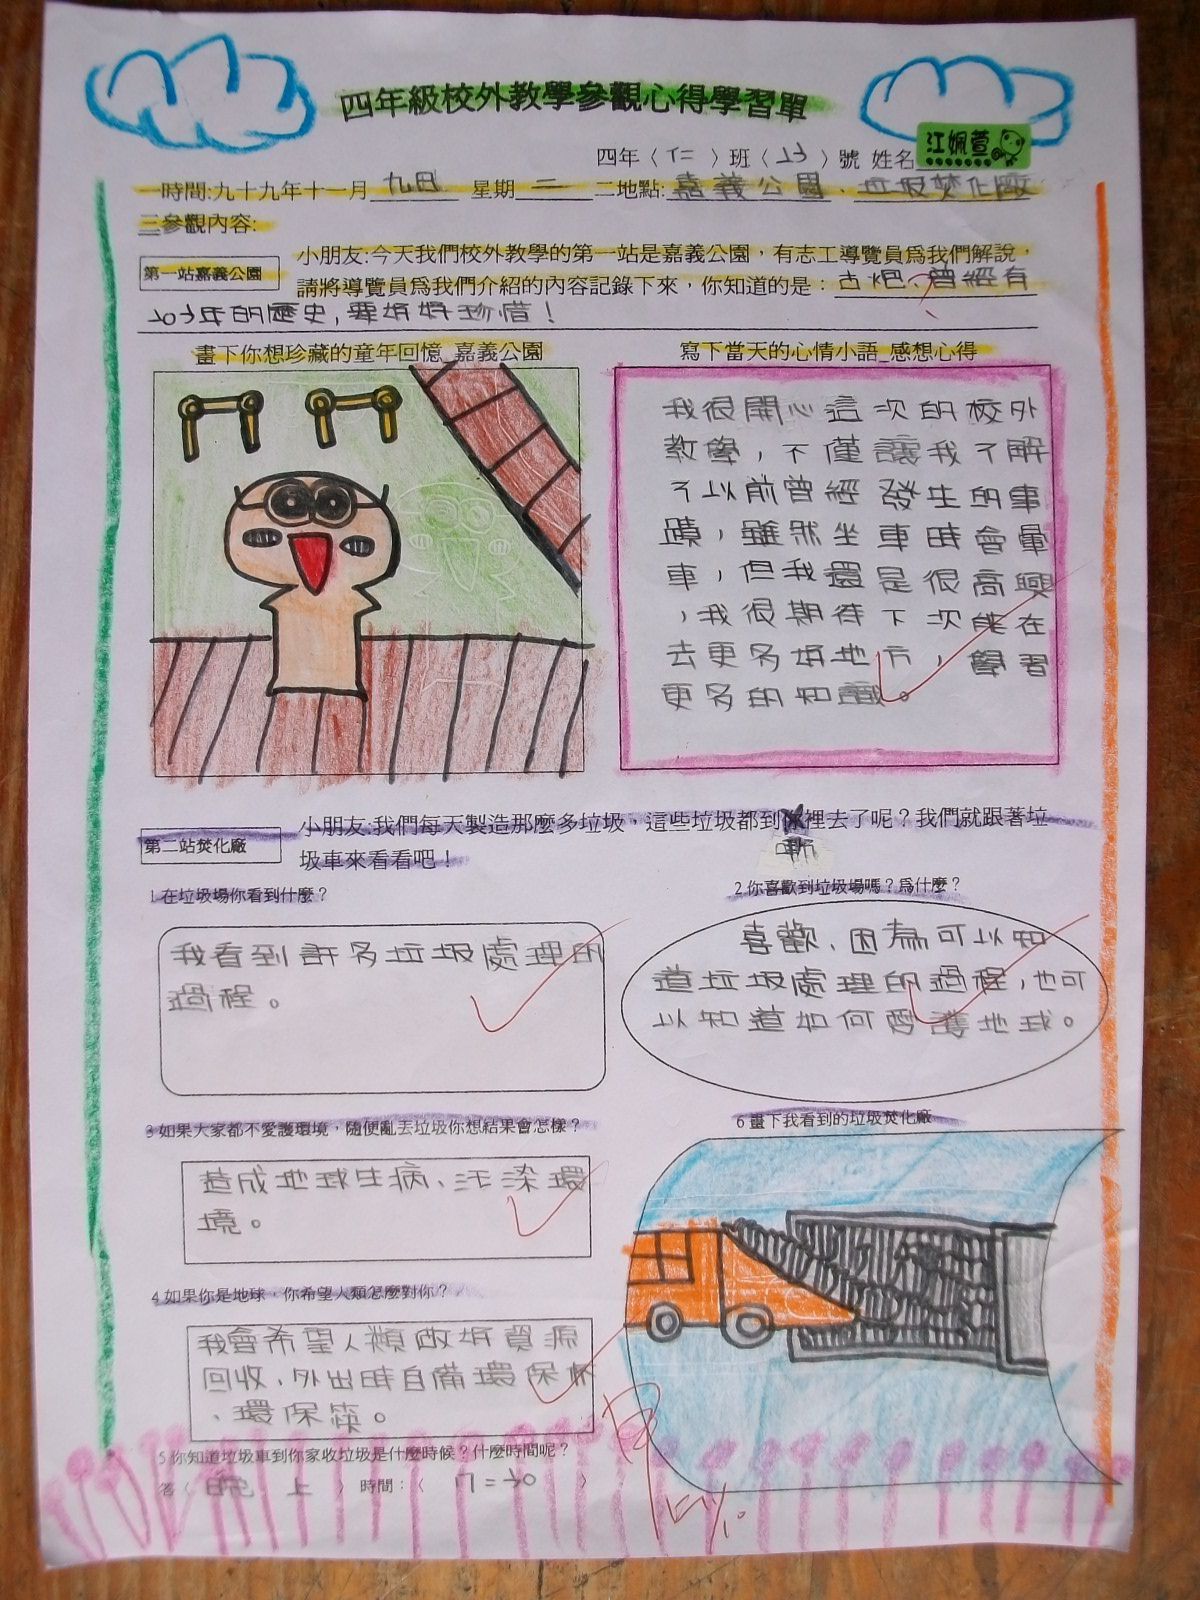 四年級校外教學參觀心得學習單
四年〈仁〉班〈23〉號 姓名 江姵萱
一時間:九十九年十一月九日 星期二 二地點:嘉義公園、垃圾焚化廠
三參觀內容:
第一站嘉義公園
小朋友:今天我們校外教學的第一站是嘉義公園，有志工導覽員為我們解說，
請將導覽員為我們介紹的內容記錄下來，你知道的是：古炮、曾經有
年的歷史,要好好珍惜！
畫下你想珍藏的童年回憶_嘉義公園
寫下當天的心情小語_感想心得
我很開心這次的校外
教學，不僅讓我了解
了以前曾經發生的事
蹟，雖然坐車時會暈
車，但我還是很高興
，我很期待下次能在
去更多好地方，學習
更多的知識。
第二站焚化廠
小朋友:我們每天製造那麼多垃圾，這些垃圾都到哪裡去了呢？我們就跟著垃
圾車來看看吧！
1在垃圾場你看到什麼？
我看到許多垃圾處理的
過程。
2你喜歡到垃圾場嗎？為什麼？
喜歡、因為可以知
道垃圾處理的過程，也可
以知道如何愛護地球。
3如果大家都不愛護環境，隨便亂丟垃圾你想結果會怎樣？
造成地球生病、汙染環
境。
4如果你是地球，你希望人類怎麼對你？
我會希望人類做好資源
回收、外出時自備環保杯
、環保筷。
5你知道垃圾車到你家收垃圾是什麼時候？什麼時間呢？
答〈晚上〉 時間：〈7=30〉
6畫下我看到的垃圾焚化廠